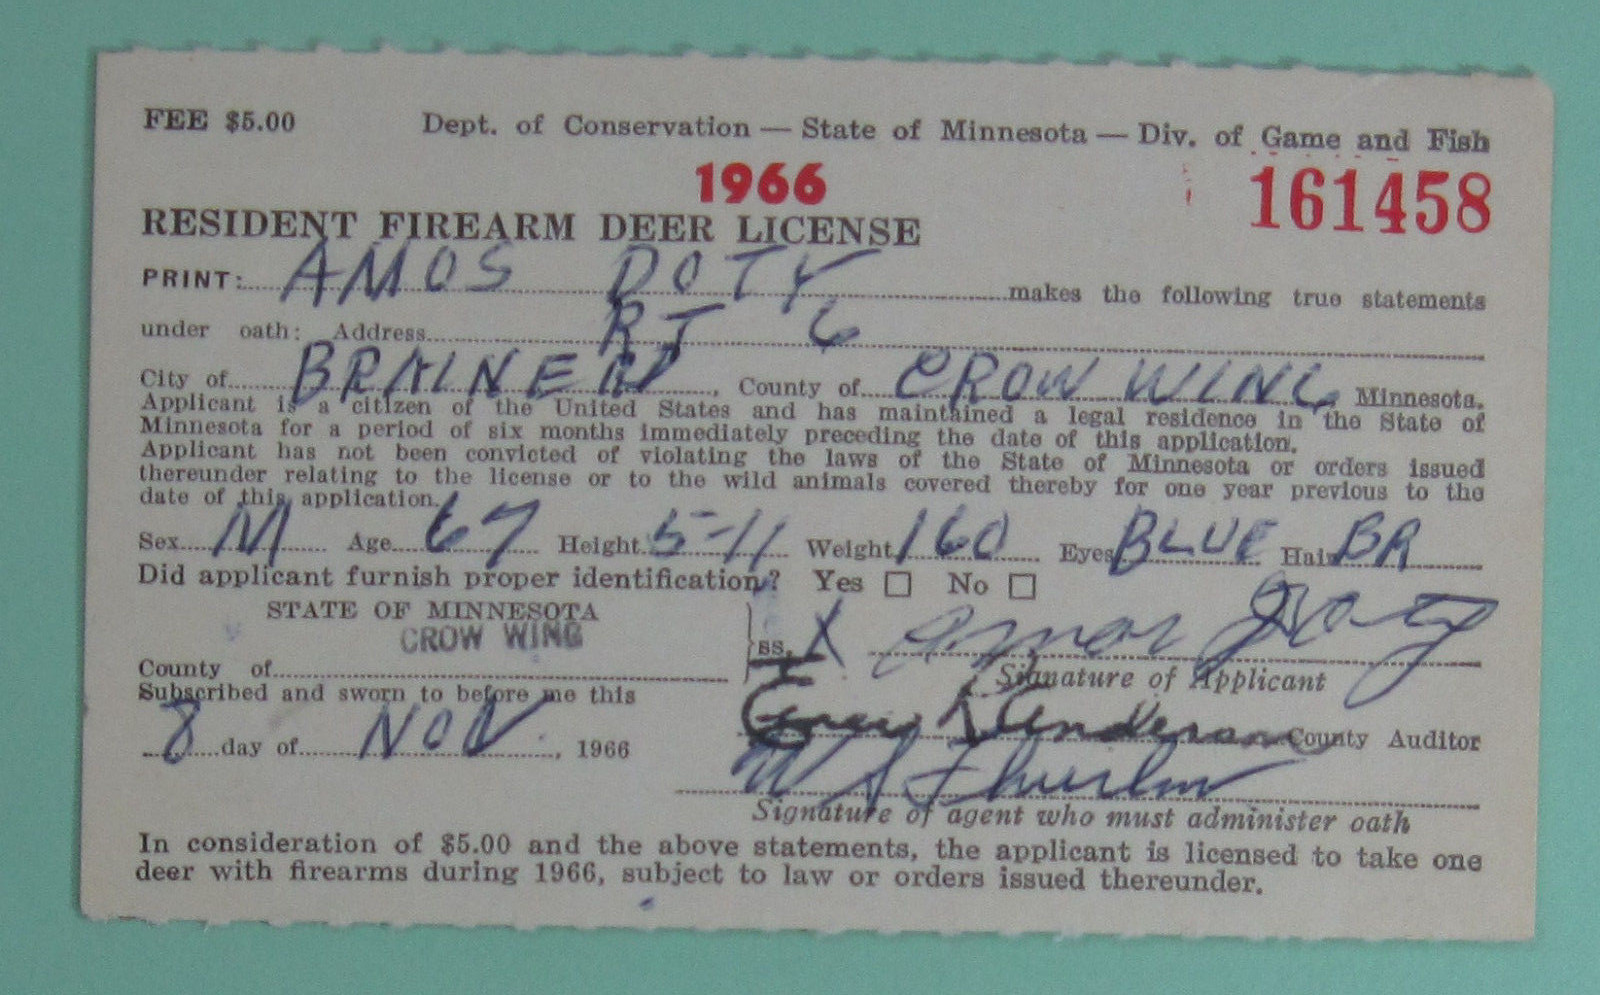 FEE $5.00 Dept. of Conservation — State of Minnesota — Div. of Game and Fish
1966 161458
RESIDENT FIREARM DEER LICENSE
PRINT: AMOS DOTY makes the following true statements
under oath: Address RT 6
City of BRAINERD, County of CROW WING Minnesota.
Applicant is a citizen of the United States and has maintained a legal residence in the State of
Minnesota for a period of six months immediately preceding the date of this application.
Applicant has not been convicted of violating the laws of the State of Minnesota or orders issued
thereunder relating to the license or to the wild animals covered thereby for one year previous to the
date of this application.
Sex M Age 67 Height 5-11 Weight 160 Eyes BLUE Hair BR
Did applicant furnish proper identification? Yes ☐ No ☐
STATE OF MINNESOTA
CROW WING
ss. X Amos Doty
County of
Signature of Applicant
Subscribed and sworn to before me this
Anderson County Auditor
8 day of NOV, 1966
Signature of agent who must administer oath
In consideration of $5.00 and the above statements, the applicant is licensed to take one
deer with firearms during 1966, subject to law or orders issued thereunder.